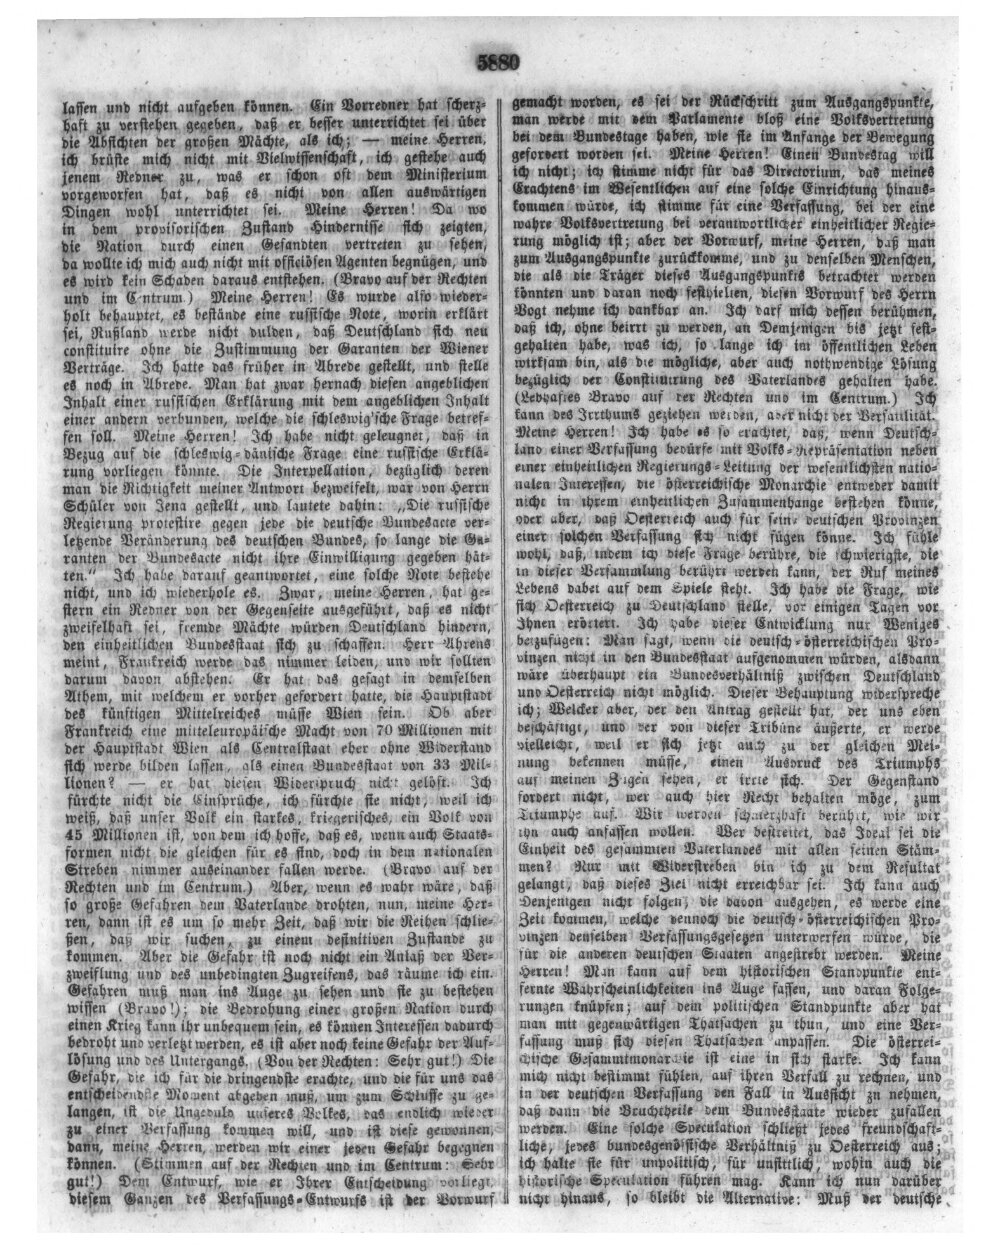 5880
lassen und nicht aufgeben können. Ein Vorredner hat scherz-
haft zu verstehen gegeben, daß er besser unterrichtet sei über
die Absichten der großen Mächte, als ich; — meine Herren,
ich brüste mich nicht mit Vielwissenschaft, ich gestehe auch
jenem Redner zu, was er schon oft dem Ministerium
vorgeworfen hat, daß es nicht von allen auswärtigen
Dingen wohl unterrichtet sei. Meine Herren! Da wo
in dem provisorischen Zustand Hindernisse sich zeigten,
die Nation durch einen Gesandten vertreten zu sehen,
da wollte ich mich auch nicht mit offiziösen Agenten begnügen, und
es wird kein Schaden daraus entstehen. (Bravo auf der Rechten
und im Centrum.) Meine Herren! Es wurde also wieder-
holt behauptet, es bestände eine russische Note, worin erklärt
sei, Rußland werde nicht dulden, daß Deutschland sich neu
constituire ohne die Zustimmung der Garanten der Wiener
Verträge. Ich hatte das früher in Abrede gestellt, und stelle
es noch in Abrede. Man hat zwar hernach diesen angeblichen
Inhalt einer russischen Erklärung mit dem angeblichen Inhalt
einer andern verbunden, welche die schleswig'sche Frage betref-
fen soll. Meine Herren! Ich habe nicht geleugnet, daß in
Bezug auf die schleswig-dänische Frage eine russische Erklä-
rung vorliegen könnte. Die Interpellation, bezüglich deren
man die Richtigkeit meiner Antwort bezweifelt, war von Herrn
Schüler von Jena gestellt, und lautete dahin: „Die russische
Regierung protestire gegen jede die deutsche Bundesacte ver-
letzende Veränderung des deutschen Bundes, so lange die Ga-
ranten der Bundesacte nicht ihre Einwilligung gegeben hät-
ten.“ Ich habe darauf geantwortet, eine solche Note bestehe
nicht, und ich wiederhole es. Zwar, meine Herren, hat ge-
stern ein Redner von der Gegenseite ausgeführt, daß es nicht
zweifelhaft sei, fremde Mächte würden Deutschland hindern,
den einheitlichen Bundesstaat sich zu schaffen. Herr Ahrens
meint, Frankreich werde das nimmer leiden, und wir sollten
darum davon abstehen. Er hat das gesagt in demselben
Athem, mit welchem er vorher gefordert hatte, die Hauptstadt
des künftigen Mittelreiches müsse Wien sein. Ob aber
Frankreich eine mitteleuropäische Macht von 70 Millionen mit
der Hauptstadt Wien als Centralstaat eher ohne Widerstand
sich werde bilden lassen, als einen Bundesstaat von 33 Mil-
lionen? — er hat diesen Widerspruch nicht gelöst. Ich
fürchte nicht die Einsprüche, ich fürchte sie nicht, weil ich
weiß, daß unser Volk ein starkes, kriegerisches, ein Volk von
45 Millionen ist, von dem ich hoffe, daß es, wenn auch Staats-
formen nicht die gleichen für es sind, doch in dem nationalen
Streben nimmer auseinander fallen werde. (Bravo auf der
Rechten und im Centrum.) Aber, wenn es wahr wäre, daß
so große Gefahren dem Vaterlande drohten, nun, meine Her-
ren, dann ist es um so mehr Zeit, daß wir die Reihen schlie-
ßen, daß wir suchen, zu einem definitiven Zustande zu
kommen. Aber die Gefahr ist noch nicht ein Anlaß der Ver-
zweiflung und des unbedingten Zugreifens, das räume ich ein.
Gefahren muß man ins Auge zu sehen und sie zu bestehen
wissen (Bravo!); die Bedrohung einer großen Nation durch
einen Krieg kann ihr unbequem sein, es können Interessen dadurch
bedroht und verletzt werden, es ist aber noch keine Gefahr der Auf-
lösung und des Untergangs. (Von der Rechten: Sehr gut!) Die
Gefahr, die ich für die dringendste erachte, und die für uns das
entscheidendste Moment abgeben muß, um zum Schlusse zu ge-
langen, ist die Ungeduld unseres Volkes, das endlich wieder
zu einer Verfassung kommen will, und ist diese gewonnen,
dann, meine Herren, werden wir einer jeden Gefahr begegnen
können. (Stimmen auf der Rechten und im Centrum: Sehr
gut!) Dem Entwurf, wie er Ihrer Entscheidung vorliegt,
diesem Ganzen des Verfassungs-Entwurfs ist der Vorwurf
gemacht worden, es sei der Rückschritt zum Ausgangspunkte,
man werde mit dem Parlamente bloß eine Volksvertretung
bei dem Bundestage haben, wie sie im Anfange der Bewegung
gefordert worden sei. Meine Herren! Einen Bundestag will
ich nicht; ich stimme nicht für das Directorium, das meines
Erachtens im Wesentlichen auf eine solche Einrichtung hinaus-
kommen würde, ich stimme für eine Verfassung, bei der eine
wahre Volksvertretung bei verantwortlicher einheitlicher Regie-
rung möglich ist; aber der Vorwurf, meine Herren, daß man
zum Ausgangspunkte zurückkomme, und zu denselben Menschen,
die als die Träger dieses Ausgangspunkts betrachtet werden
könnten und daran noch festhielten, diesen Vorwurf des Herrn
Vogt nehme ich dankbar an. Ich darf mich dessen berühmen,
daß ich, ohne beirrt zu werden, an Demjenigen bis jetzt fest-
gehalten habe, was ich, so lange ich im öffentlichen Leben
wirksam bin, als die mögliche, aber auch nothwendige Lösung
bezüglich der Constituirung des Vaterlandes gehalten habe.
(Lebhaftes Bravo auf der Rechten und im Centrum.) Ich
kann des Irrthums geziehen werden, aber nicht der Versatilität.
Meine Herren! Ich habe es so erachtet, daß, wenn Deutsch-
land einer Verfassung bedürfe mit Volks-Repräsentation neben
einer einheitlichen Regierungs-Leitung der wesentlichsten natio-
nalen Interessen, die österreichische Monarchie entweder damit
nicht in ihrem einheitlichen Zusammenhange bestehen könne,
oder aber, daß Oesterreich auch für seine deutschen Provinzen
einer solchen Verfassung sich nicht fügen könne. Ich fühle
wohl, daß, indem ich diese Frage berühre, die schwierigste, die
in dieser Versammlung berührt werden kann, der Ruf meines
Lebens dabei auf dem Spiele steht. Ich habe die Frage, wie
sich Oesterreich zu Deutschland stelle, vor einigen Tagen vor
Ihnen erörtert. Ich habe dieser Entwicklung nur Weniges
beizufügen: Man sagt, wenn die deutsch-österreichischen Pro-
vinzen nicht in den Bundesstaat aufgenommen würden, alsdann
wäre überhaupt ein Bundesverhältniß zwischen Deutschland
und Oesterreich nicht möglich. Dieser Behauptung widerspreche
ich; Welcker aber, der den Antrag gestellt hat, der uns eben
beschäftigt, und der von dieser Tribüne äußerte, er werde
vielleicht, weil er sich jetzt auch zu der gleichen Mei-
nung bekennen müsse, einen Ausdruck des Triumphs
auf meinen Zügen sehen, er irrte sich. Der Gegenstand
fordert nicht, wer auch hier Recht behalten möge, zum
Triumphe auf. Wir werden schmerzhaft berührt, wie wir
ihn auch anfassen wollen. Wer bestreitet, das Ideal sei die
Einheit des gesammten Vaterlandes mit allen seinen Stäm-
men? Nur mit Widerstreben bin ich zu dem Resultat
gelangt, daß dieses Ziel nicht erreichbar sei. Ich kann auch
Denjenigen nicht folgen, die davon ausgehen, es werde eine
Zeit kommen, welche dennoch die deutsch-österreichischen Pro-
vinzen denselben Verfassungsgesetzen unterwerfen würde, die
für die anderen deutschen Staaten angestrebt werden. Meine
Herren! Man kann auf dem historischen Standpunkte ent-
fernte Wahrscheinlichkeiten ins Auge fassen, und daran Folge-
rungen knüpfen; auf dem politischen Standpunkte aber hat
man mit gegenwärtigen Thatsachen zu thun, und eine Ver-
fassung muß sich diesen Thatsachen anpassen. Die österrei-
chische Gesammtmonarchie ist eine in sich starke. Ich kann
mich nicht bestimmt fühlen, auf ihren Verfall zu rechnen, und
in der deutschen Verfassung den Fall in Aussicht zu nehmen,
daß dann die Bruchtheile dem Bundesstaate wieder zufallen
werden. Eine solche Speculation schließt jedes freundschaft-
liche, jedes bundesgenössische Verhältniß zu Oesterreich aus;
ich halte sie für unpolitisch, für unsittlich, wohin auch die
historische Speculation führen mag. Kann ich nun darüber
nicht hinaus, so bleibt die Alternative: Muß der deutsche